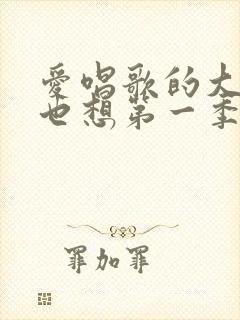 愛唱歌的大
也想第一季
罪加罪